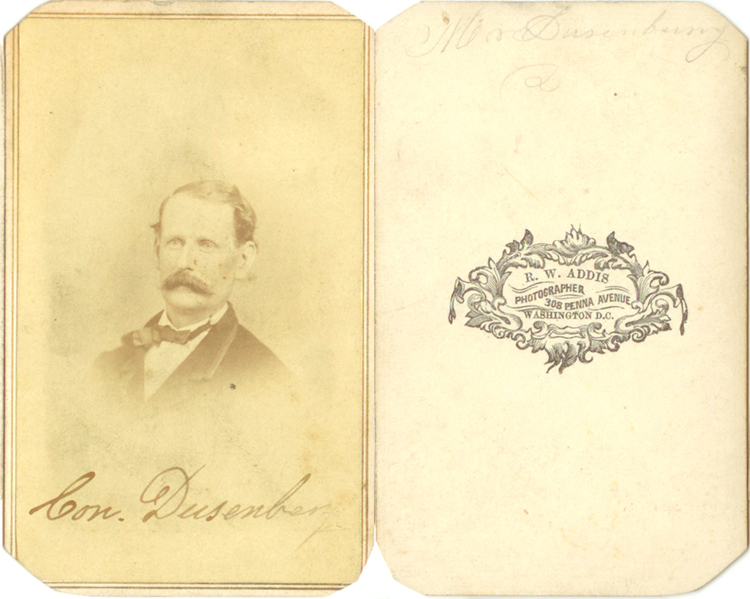 Con. Dusenbery
Mr Dusenbury
R. W. ADDIS
PHOTOGRAPHER
308 PENNA AVENUE
WASHINGTON D.C.